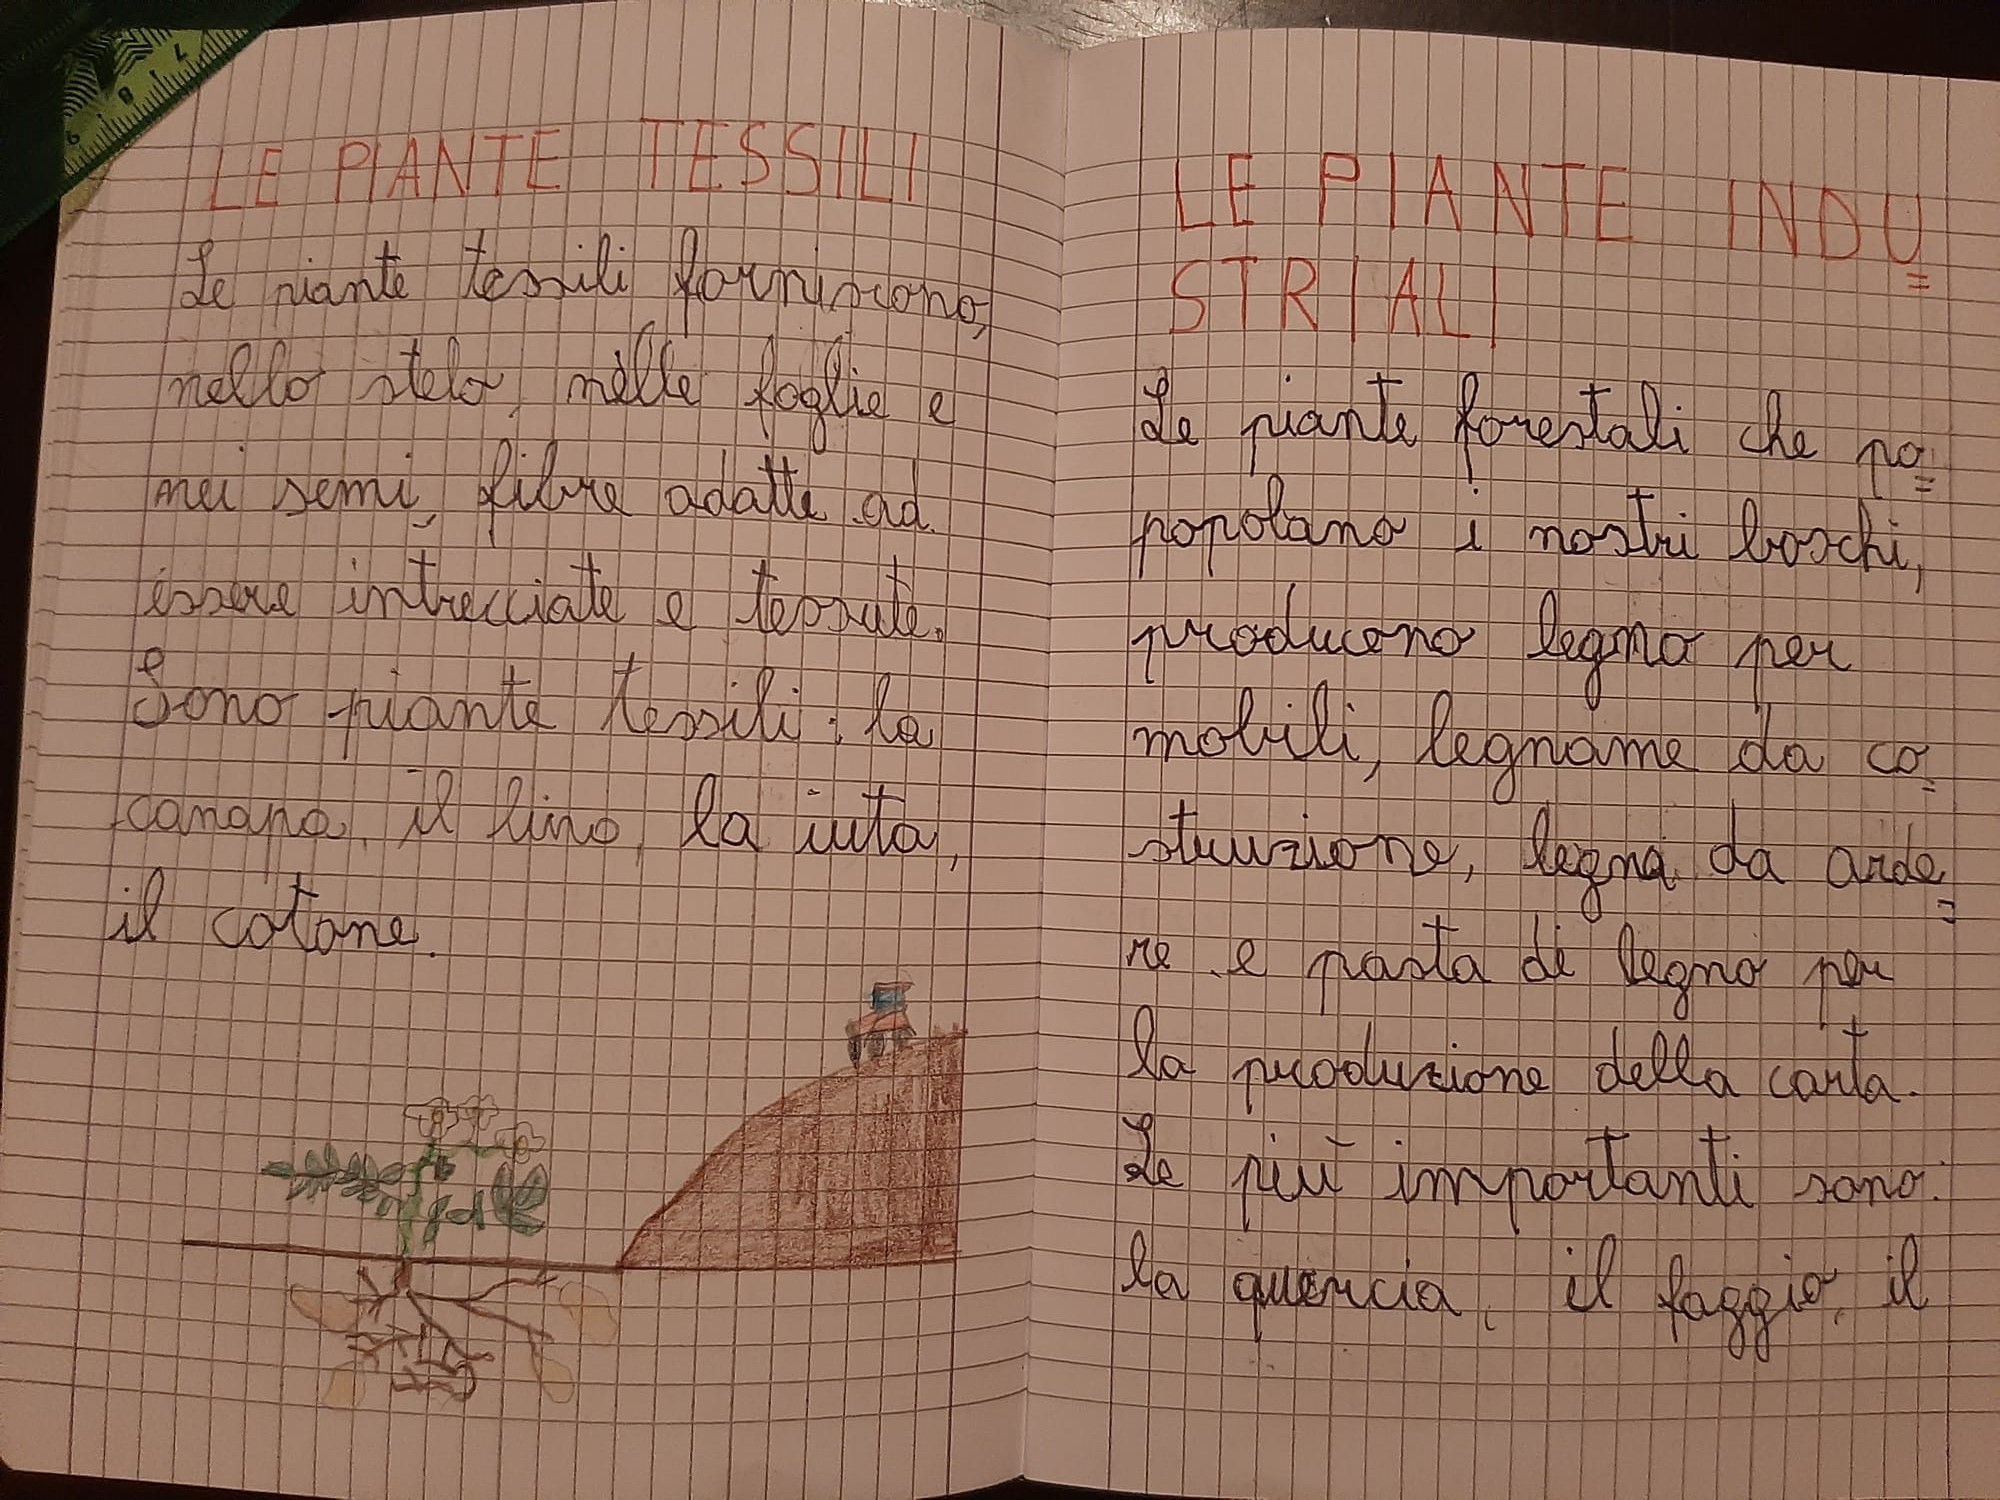 LE PIANTE TESSILI
Le piante tessili forniscono,
nello stelo, nelle foglie e
nei semi, fibre adatte ad
essere intrecciate e tessute.
Sono piante tessili: la
canapa, il lino, la iuta,
il cotone.
LE PIANTE INDU=
STRIALI
Le piante forestali che po=
popolano i nostri boschi,
producono legno per
mobili, legname da co=
struzione, legna da arde=
re e pasta di legno per
la produzione della carta.
Le più importanti sono:
la quercia, il faggio, il